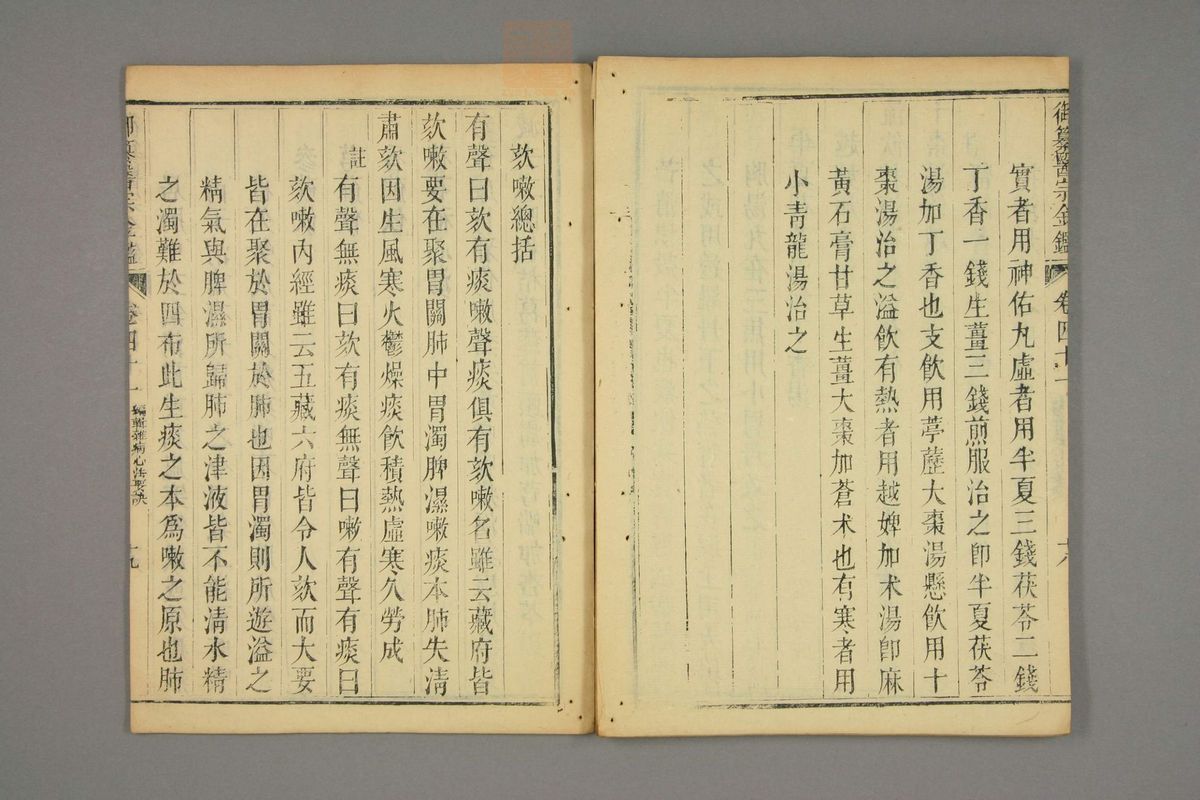 御纂醫宗金鑑 卷四十一 十八
實者用神佑丸虛者用半夏三錢茯苓二錢
丁香一錢生薑三錢煎服治之卽半夏茯苓
湯加丁香也支飲用葶藶大棗湯懸飲用十
棗湯治之溢飲有熱者用越婢加术湯卽麻
黃石膏甘草生薑大棗加蒼术也有寒者用
小青龍湯治之
欬嗽總括
有聲曰欬有痰嗽聲痰俱有欬嗽名雖云藏府皆
欬嗽要在聚胃關肺中胃濁脾濕嗽痰本肺失清
肅欬因生風寒火鬱燥痰飲積熱虛寒久勞成
註 有聲無痰曰欬有痰無聲曰嗽有聲有痰曰
欬嗽內經雖云五藏六府皆令人欬而大要
皆在聚於胃關於肺也因胃濁則所遊溢之
精氣與脾濕所歸肺之津液皆不能清水精
之濁難於四布此生痰之本爲嗽之原也肺
御纂醫宗金鑑 卷四十一 編輯雜病心法要訣 十九